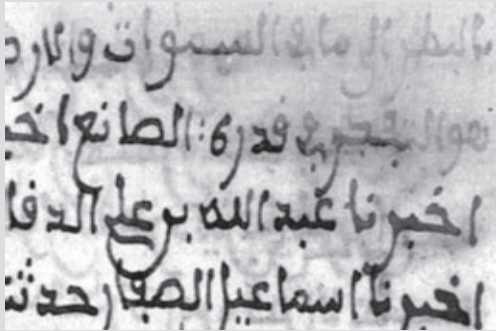 بالنظر الى ما في السموات والار
هو التفكر في قدرة الصانع اخبر
اخبرنا عبد الله بن علي الدقا
اخبرنا اسماعيل الصفار حدثنا